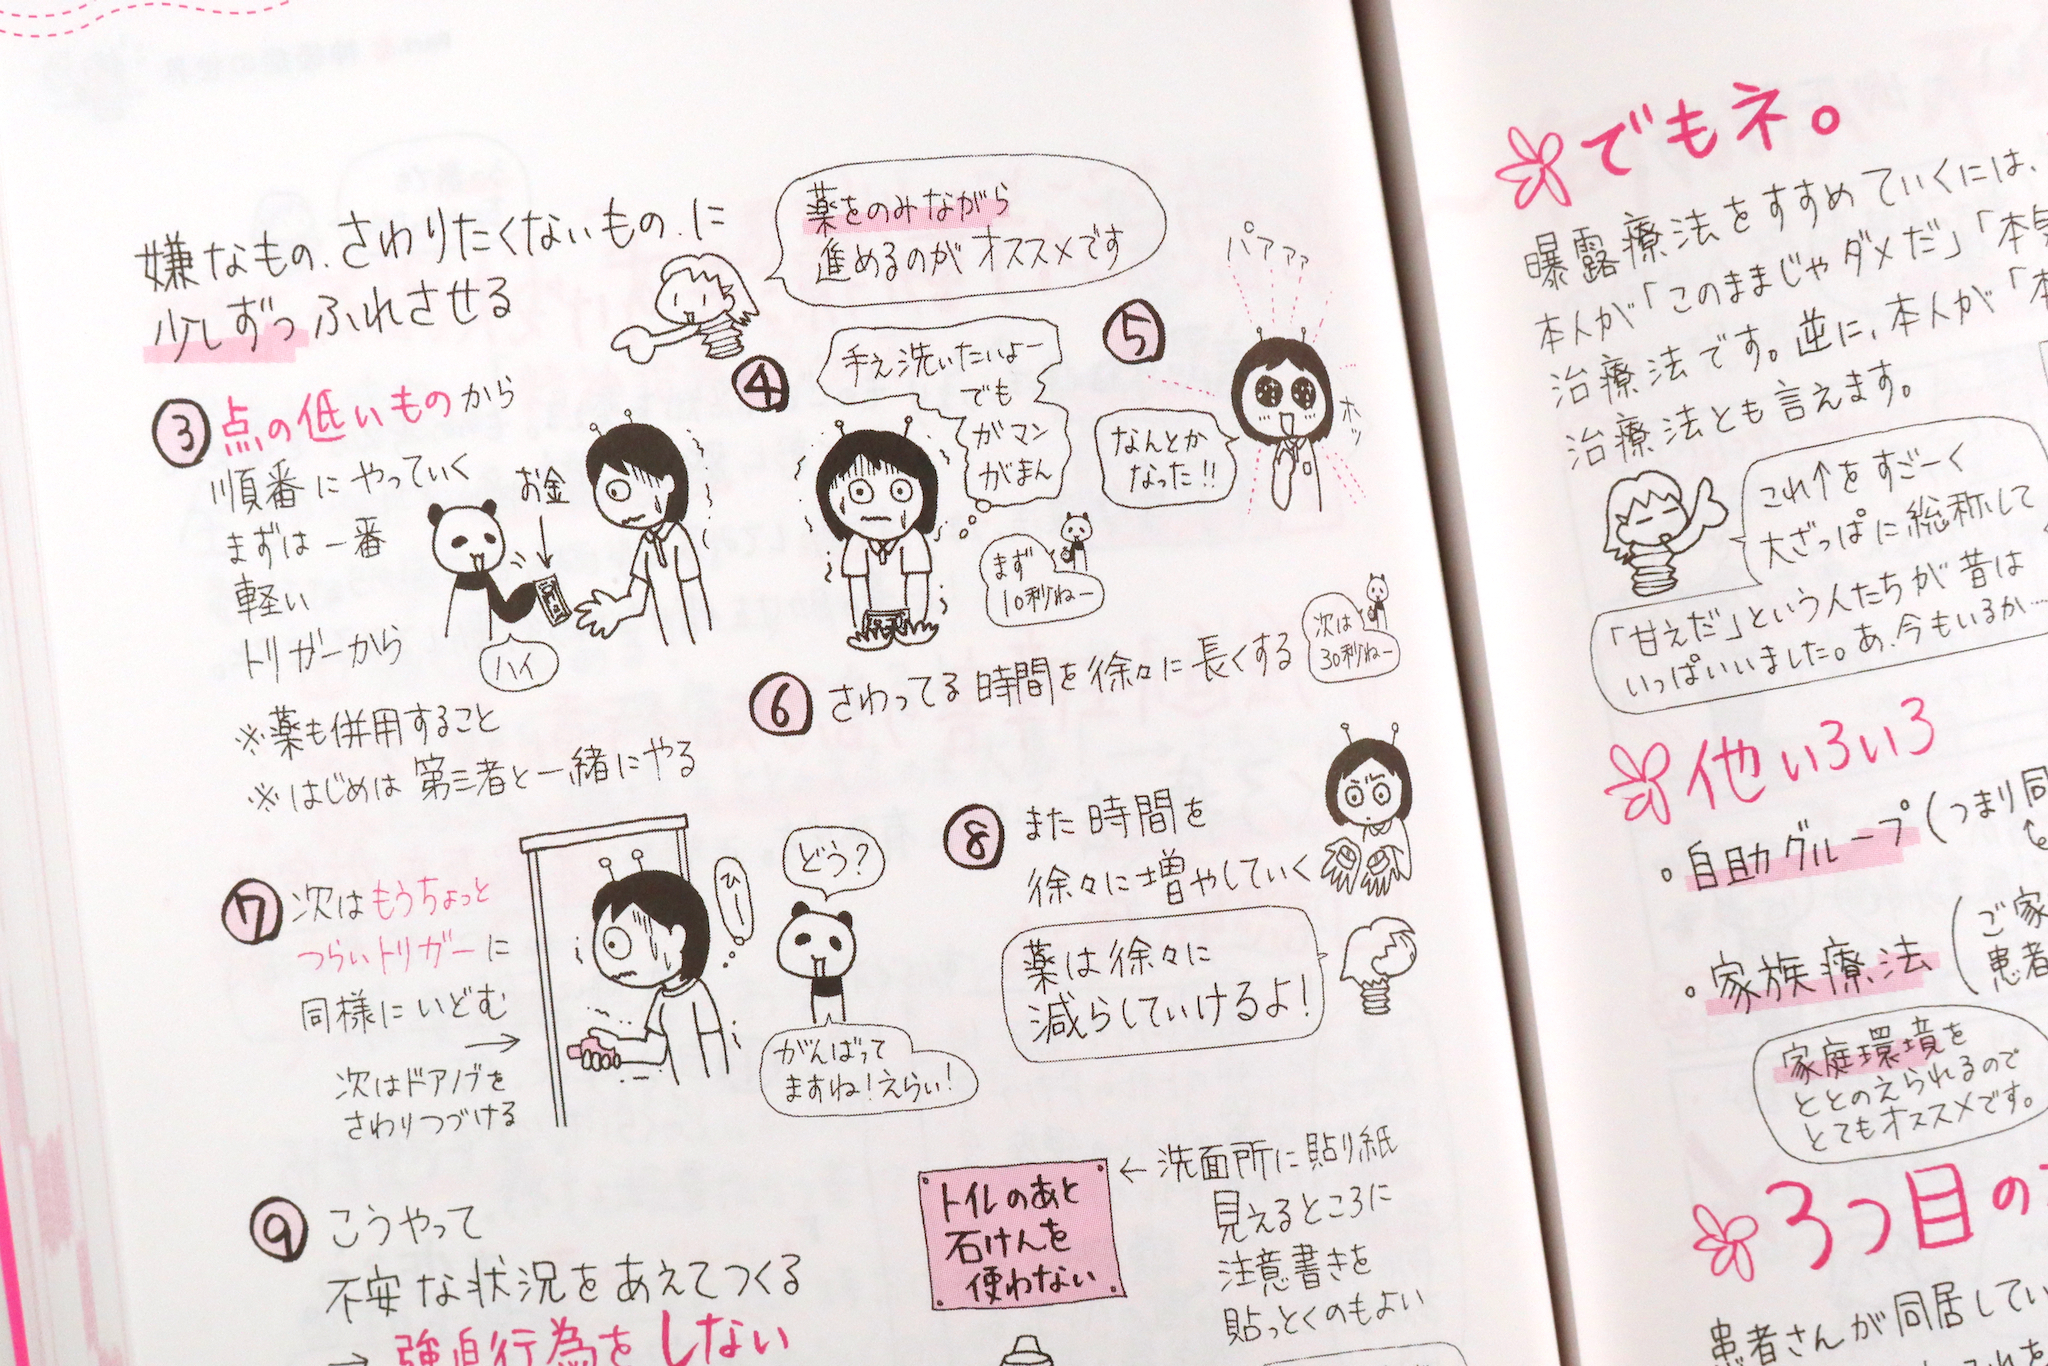 嫌なもの、さわりたくないもの、に
少しずつふれさせる
薬をのみながら
進めるのがオススメです
③点の低いものから
順番にやっていく
まずは一番
軽い
トリガーから
お金
ハイ
※薬も併用すること
※はじめは第三者と一緒にやる
④
手え洗いたいよー
でも
ガマン
がまん
まず
10秒ねー
⑤
パアァァ
なんとか
なった!!
ホッ
⑥さわってる時間を徐々に長くする
次は
30秒ねー
⑦次はもうちょっと
つらいトリガーに
同様にいどむ
→
次はドアノブを
さわりつづける
ひー
どう?
がんばって
ますね!えらい!
⑧また時間を
徐々に増やしていく
薬は徐々に
減らしていけるよ!
⑨こうやって
不安な状況をあえてつくる
→強迫行為をしない
トイレのあと
石けんを
使わない
←洗面所に貼り紙
見えるところに
注意書きを
貼っとくのもよい
でもネ。
曝露療法をすすめていくには、
本人が「このままじゃダメだ」「本気
治療法です。逆に、本人が「本
治療法とも言えます。
これ↑をすごーく
大ざっぱに総称して
「甘えだ」という人たちが昔は
いっぱいいました。あ、今もいるか…
他いろいろ
・自助グループ(つまり同
・家族療法(ご家
患者
家庭環境を
ととのえられるので
とてもオススメです。
3つ目の
患者さんが同居してい